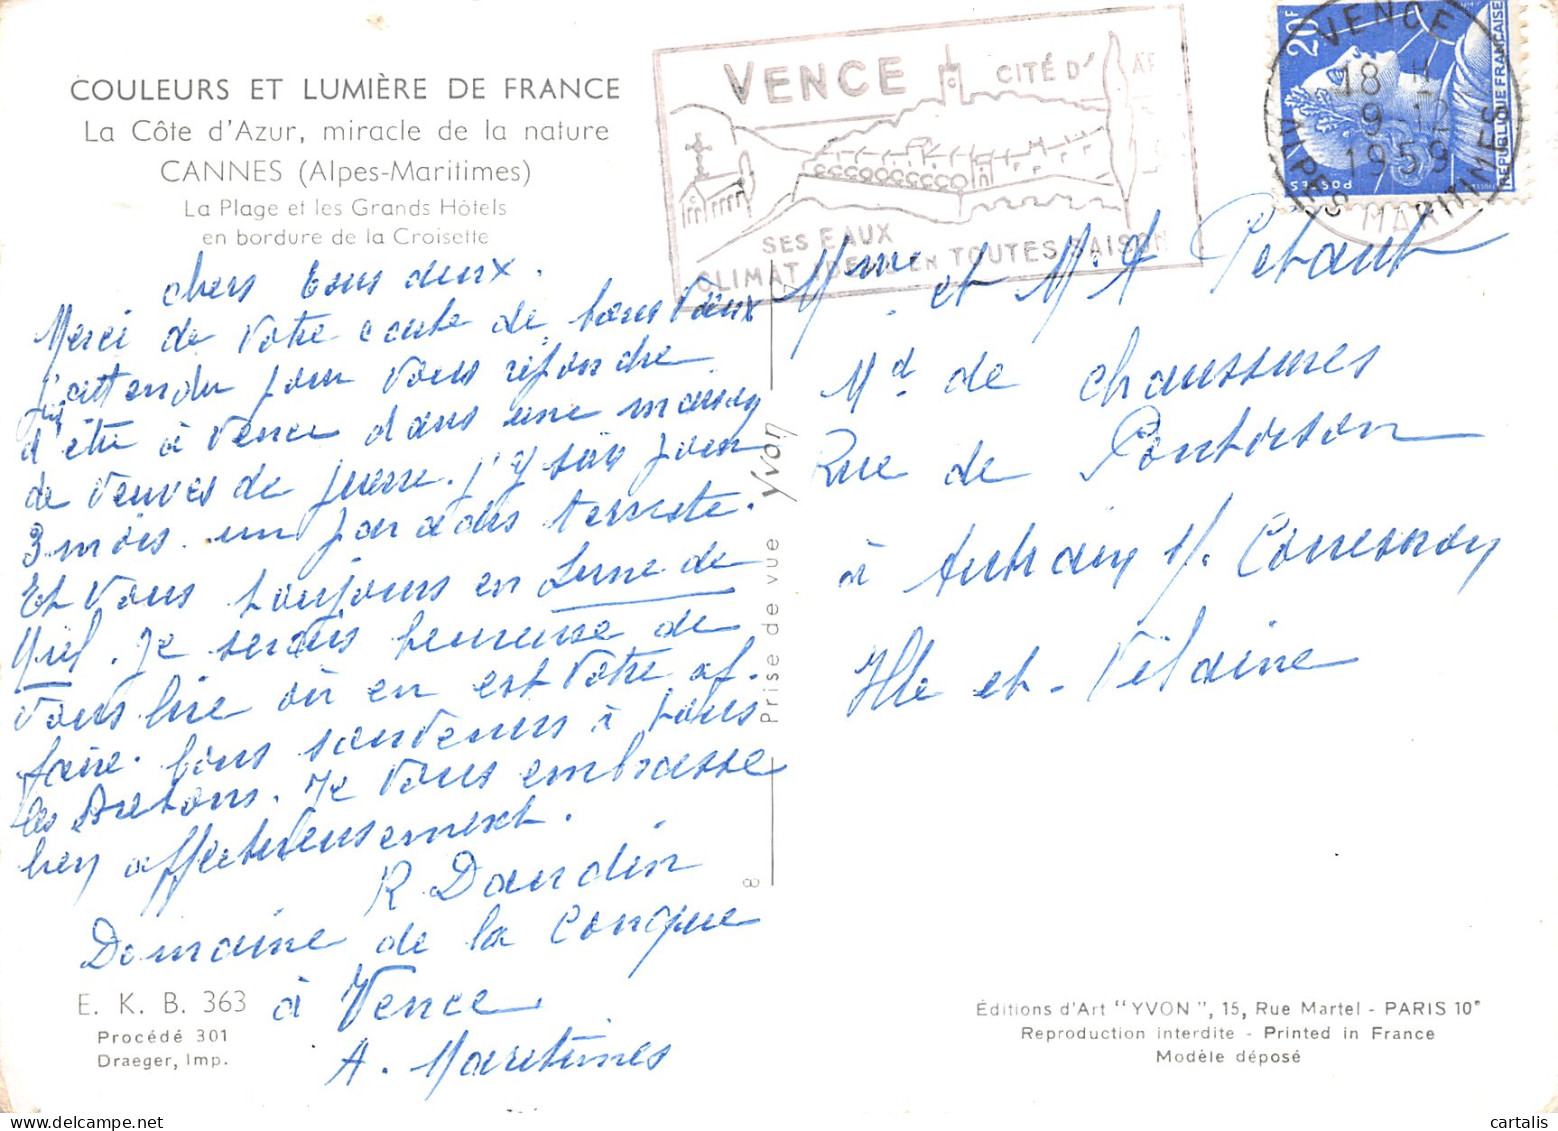 COULEURS ET LUMIÈRE DE FRANCE
La Côte d'Azur, miracle de la nature
CANNES (Alpes-Maritimes)
La Plage et les Grands Hôtels
en bordure de la Croisette
VENCE
CITÉ D'
SES EAUX
CLIMAT IDEAL EN TOUTES SAISON
VENCE
18 H
9-12
1959
ALPES MARITIMES
20F
POSTES
REPUBLIQUE FRANÇAISE
chers tous deux.
Merci de votre carte de bons vœux
j'attendu pour vous répondre
d'été à Vence dans une maison
de veuves de guerre. j'y suis pour
3 mois. un paradis terrestre.
Et vous toujours en Lune de
Miel. Je serais heureuse de
vous lire où en est votre af-
faire. bons souvenirs à tous
les Bretons. Je vous embrasse
bien affectueusement.
R Dandin
Domaine de la Conque
à Vence
A. Maritimes
Mme et Mr A Petaut
Md de chaussures
Rue de Pontorson
à Antrain s/. Couesnon
Ille et - Vilaine
Prise de vue Yvon
8
E. K. B. 363
Procédé 301
Draeger, Imp.
Éditions d'Art "YVON", 15, Rue Martel - PARIS 10e
Reproduction interdite - Printed in France
Modèle déposé
cartalis